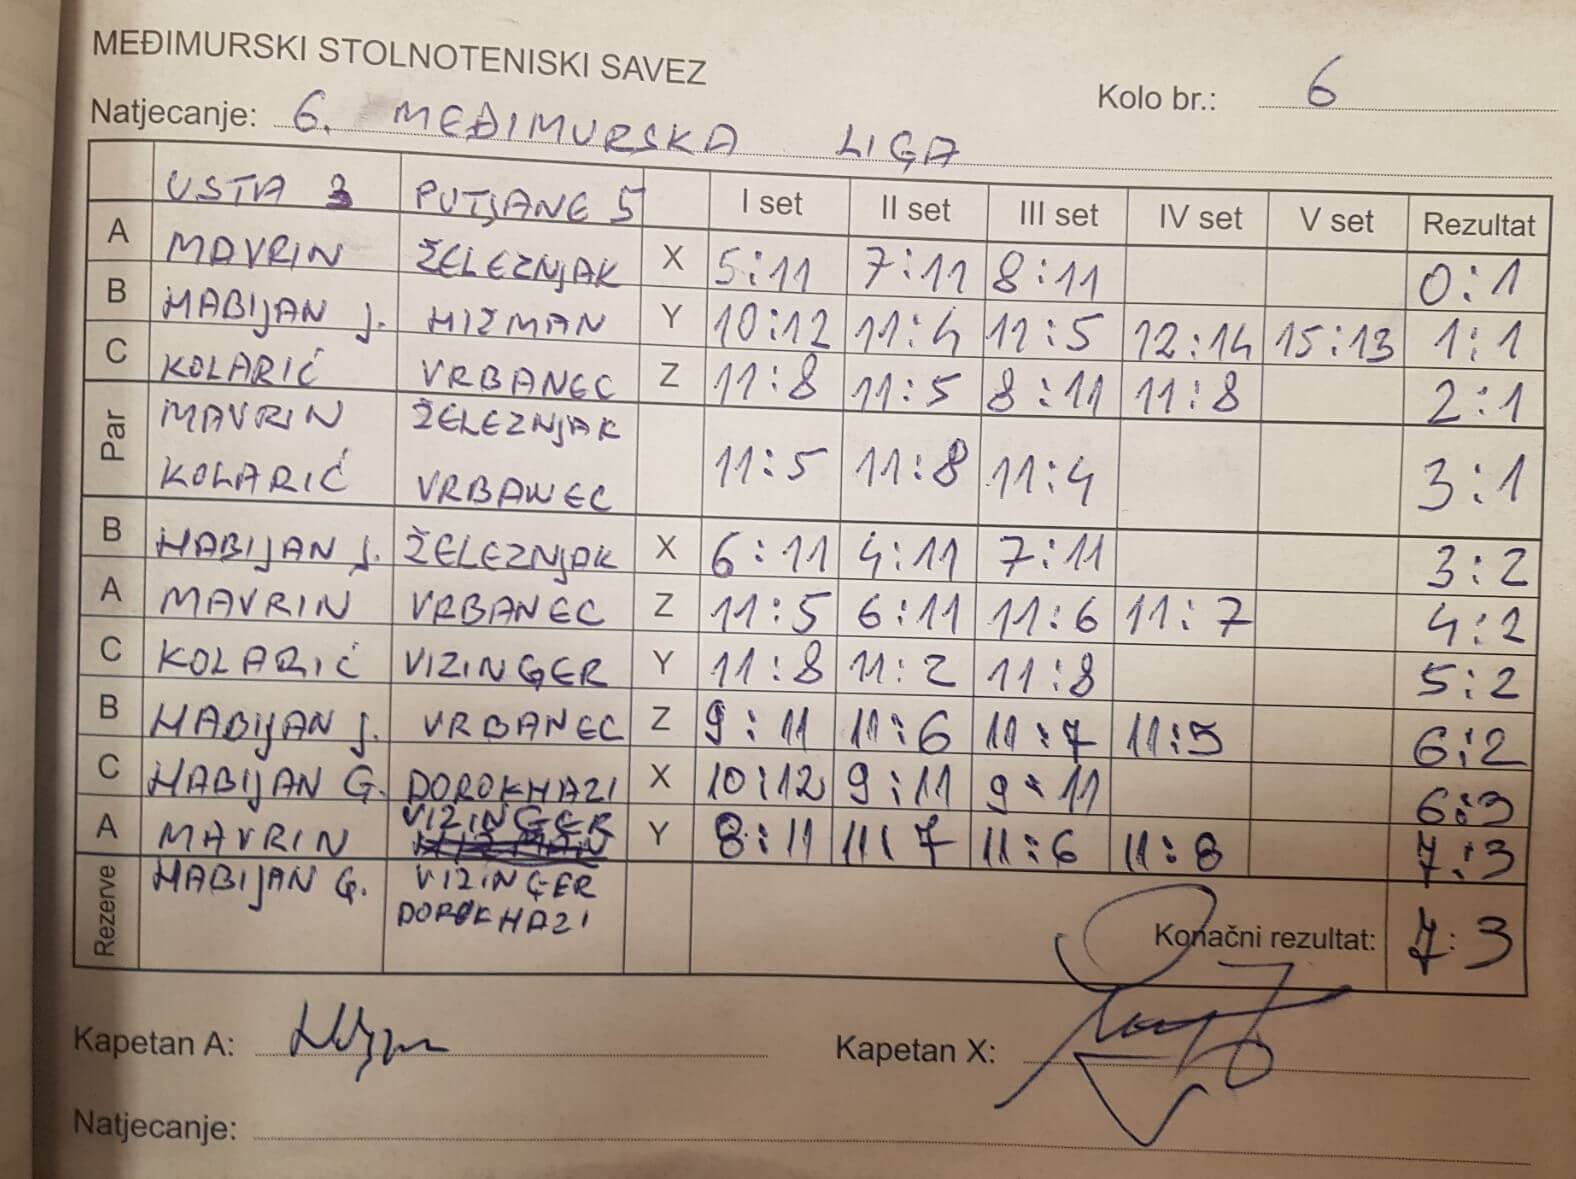 MEĐIMURSKI STOLNOTENISKI SAVEZ
Kolo br.: 6
Natjecanje: 6. MEĐIMURSKA LIGA
USTA 3 PUTJANE 5 I set II set III set IV set V set Rezultat
A MAVRIN ŽELEZNJAK X 5:11 7:11 8:11 0:1
B HABIJAN J. HIŽMAN Y 10:12 11:4 11:5 12:14 15:13 1:1
C KOLARIĆ VRBANEC Z 11:8 11:5 8:11 11:8 2:1
Par MAVRIN ŽELEZNJAK
KOLARIĆ VRBANEC 11:5 11:8 11:4 3:1
B HABIJAN J. ŽELEZNJAK X 6:11 4:11 7:11 3:2
A MAVRIN VRBANEC Z 11:5 6:11 11:6 11:7 4:2
C KOLARIĆ VIZINGER Y 11:8 11:2 11:8 5:2
B HABIJAN J. VRBANEC Z 9:11 11:6 11:7 11:5 6:2
C HABIJAN G. DOROKHAZI X 10:12 9:11 9:11 6:3
A MAVRIN VIZINGER Y 8:11 11:7 11:6 11:8 7:3
Rezerve HABIJAN G. VIZINGER
DOROKHAZI
Konačni rezultat: 7:3
Kapetan A:
Kapetan X:
Natjecanje: